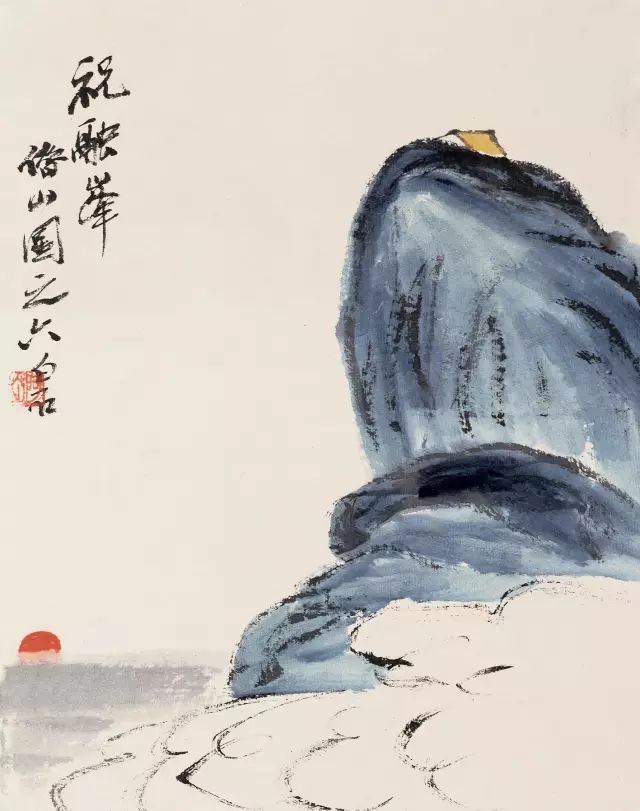 祝融峯
借山圖之六 白石